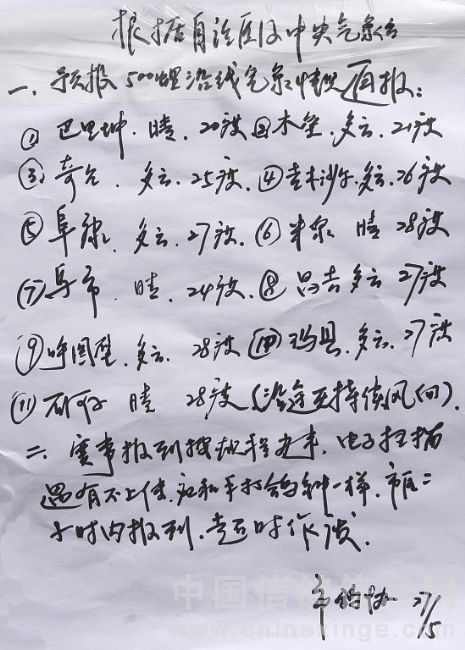 根据自治区及中央气象台
一、预报500哩沿线气象情况通报:
① 巴里坤、晴、20度 ② 木垒、多云、21度
③ 奇台、多云、25度、④ 吉木沙尔、多云、26度
⑤ 阜康、多云、27度、⑥ 米泉 晴 28度
⑦ 乌市、晴、24度、⑧ 昌吉 多云 27度
⑨ 呼图壁、多云、28度 ⑩ 玛县、多云、27度
⑪ 石河 晴 28度(沿途无持续风向)。
二、赛事报到按规程办事、电子扫描
遇有不上传、应和手打鸽钟一样、市区二
小时内报到、超时作废。
市鸽协 27/5
中国信鸽信息网
www.chinaxinge.com